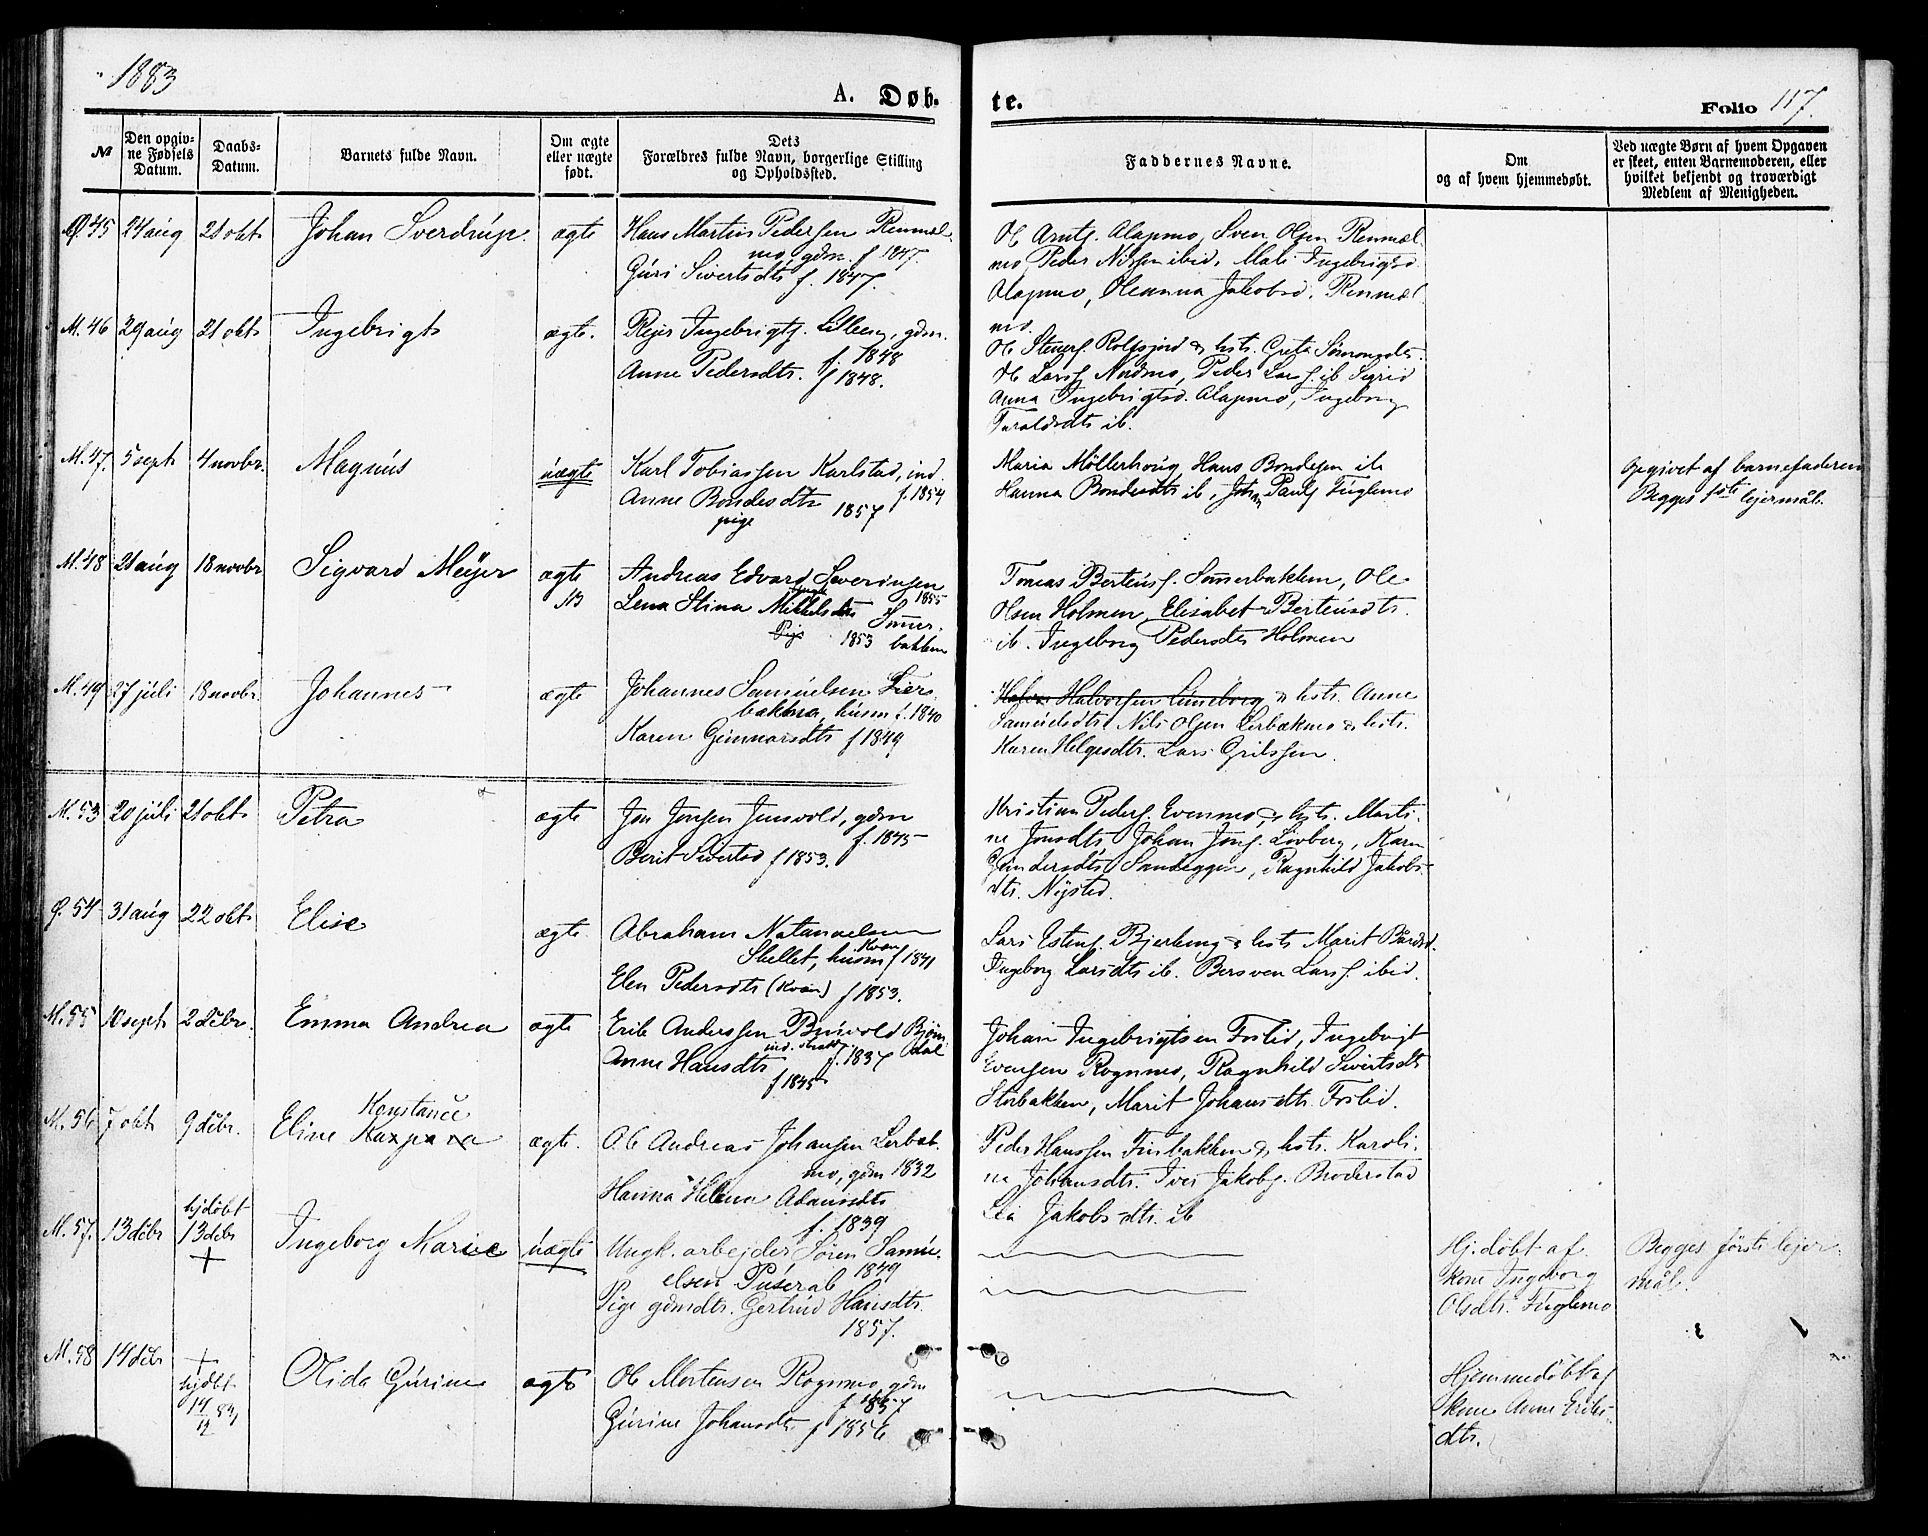 1883
A. Døb-
te.
Folio 117.
№
Den opgiv-
ne Fødsels
Datum.
Daabs-
Datum.
Barnets fulde Navn.
Om ægte
eller uægte
født.
Dets
Forældres fulde Navn, borgerlige Stilling
og Opholdssted.
Faddernes Navne.
Om
og af hvem hjemmedøbt.
Ved uægte Børn af hvem Opgaven
er skeet, enten Barnemoderen, eller
hvilket bekjendt og troværdigt
Medlem af Menigheden.
45 24 aug 21 okt Johan Sverdrup. ægte
Hans Martin Pedersen Rennæl-
mo, gdm. f 1847
Guri Sivertsdtr f. 1847.
Ole Arntf. Alapmo, Sven Olsen Rennæl-
mo, Peder Nilssen ibid, Mali Ingebrigtsd.
Alapmo, Oleanna Jakobsd. Rennæl-
mo.
M. 46 29 aug 21 okt Ingebrigt ægte.
Ingebrigtf. Lilleeng, gdm.
f. 1848
Anne Pedersdtr. f 1848.
Ole Rolfsjord & hst.
Ole Larsf Nordmo, Peder Larsf. ib Sigrid
Anna Ingebrigtsd. Alapmo, Ingeborg
Taraldsdtr ib.
M. 47. 5 sept 4 novbr. Magnus uægte
Karl Tobiassen Karlstad, ind.
f. 1854
Anne Bondesdtr 1857
pige
Maria Möllerhoug, Hans Bondesen ib
Hanna Bondesdtr ib, Johan Paulf Fuglemo
Opgivet af barnefaderen
Begges 1ste lejermål.
M. 48 21 aug 18 novbr Sigvard Mejer ægte
NB
Andreas Edvard Severinsen
1855
Lena Stina Mikkelsdtr Sömer-
Pige 1853 bakken
Tomas Berteusf. Sömerbakken, Ole
Olsen Holmen, Elisabet Berteusdtr.
ib. Ingeborg Pedersdtr Holmen
M. 49 27 juli 18 novbr. Johannes ægte
Johannes Samuelsen Ler-
bakmo, husm f. 1840
Karen Gunnarsdtr f 1849
Halvor Halvorsen Luneborg & hst. Anne
Samuelsdtr Nils Olsen Lerbakmo & hst.
Karen Helgesdtr. Lars
M. 53 20 juli 21 okt Petra ægte
Jon Jonsen Jensvold, gdm
f. 1845
Berit Sivertsd f 1853.
Kristian Pedersf. Evenmo, & hst. Marti-
ne Jonsdtr Johan Jonsf. Lövberg, Karen
Gundersdtr Sandeggen, Ragnhild Jakobs-
dtr. Nysted.
54 31 aug 22 okt Elise ægte
Abraham Natanaelsen
Skellet, husm Kvæn f 1841
Elen Pedersdtr (Kvæn) f 1853.
Lars Estenf. Bjerkeng & hst Marit Bårdsd.
Ingeborg Larsdtr ib. Bersven Larsf. ibid.
M. 55 10 sept 2 debr. Emma Andrea ægte
Erik Anderssen Buvold Björn-
dal
f. 1837
Anne Hansdtr
f 1845
Johan Ingebrigtsen Foslid, Ingebrigt
Evensen Rognmo, Ragnhild Sivertsdtr
Storbakken, Marit Johansdtr. Foslid.
Konstance
M. 56 7 okt 9 debr. Eline Kaspara ægte.
Ole Andreas Johansen Lerbak-
mo, gdm 1832
Hanna Helena Adamsdtr
f. 1839
Peder Hanssen Finbakken & hst. Karoli-
na Johansdtr. Iver Jakobf. Broderstad
Lea Jakobsdtr. ib
M. 57. 13 debr hjdöbt 13 debr + Ingeborg Marie uægte
Ungk. arbejder Sören Samu-
elsen 1849
Pige gdmdtr. Gertrud Hansdtr.
1857.
Hj. döbt af
kone Ingeborg
Olsdtr. Fuglemo
Begges förste lejer-
mål.
M. 58 14 debr + hjdöbt 14/12 83, Olida Gurine ægte
Ole Mortensen Rognmo, gdm
f 1857
Gurine Johansdtr f 1856
Hjemmedöbt af
kone Anne Eriks-
dtr.